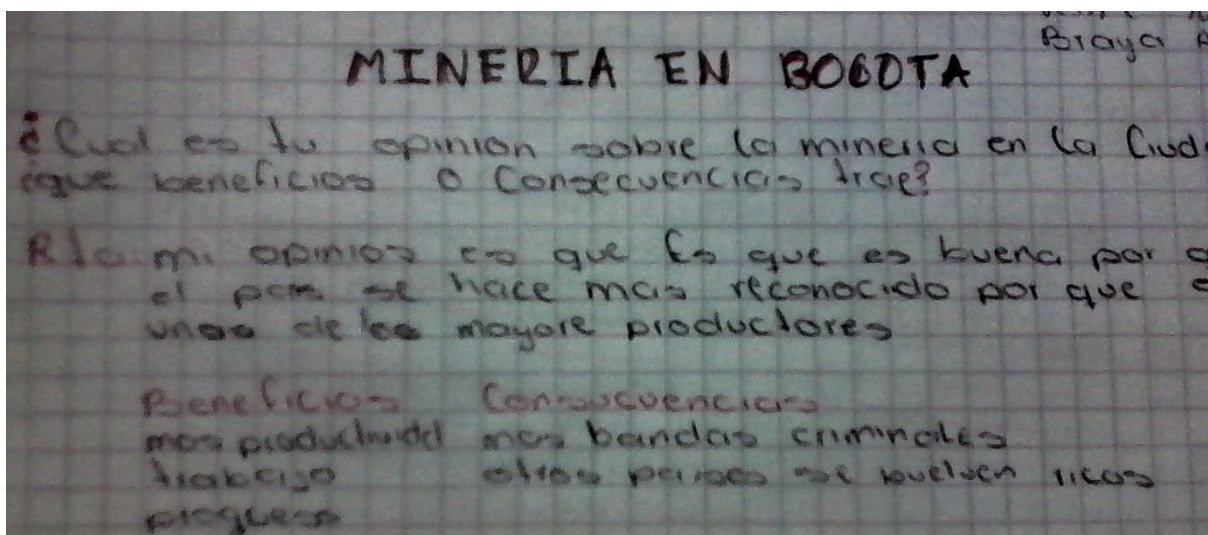 Braya
MINERIA EN BOGOTA
¿Cual es tu opinion sobre la mineria en la Ciud
¿que beneficios o Consecuencias trae?
R/ mi opinion es que Es que es buena por
el pais se hace mas reconocido por que e
unos de los mayore productores
Beneficios Consecuencias
mas productividd mas bandas criminales
trabajo otros paises se vuelven ricos
progreso